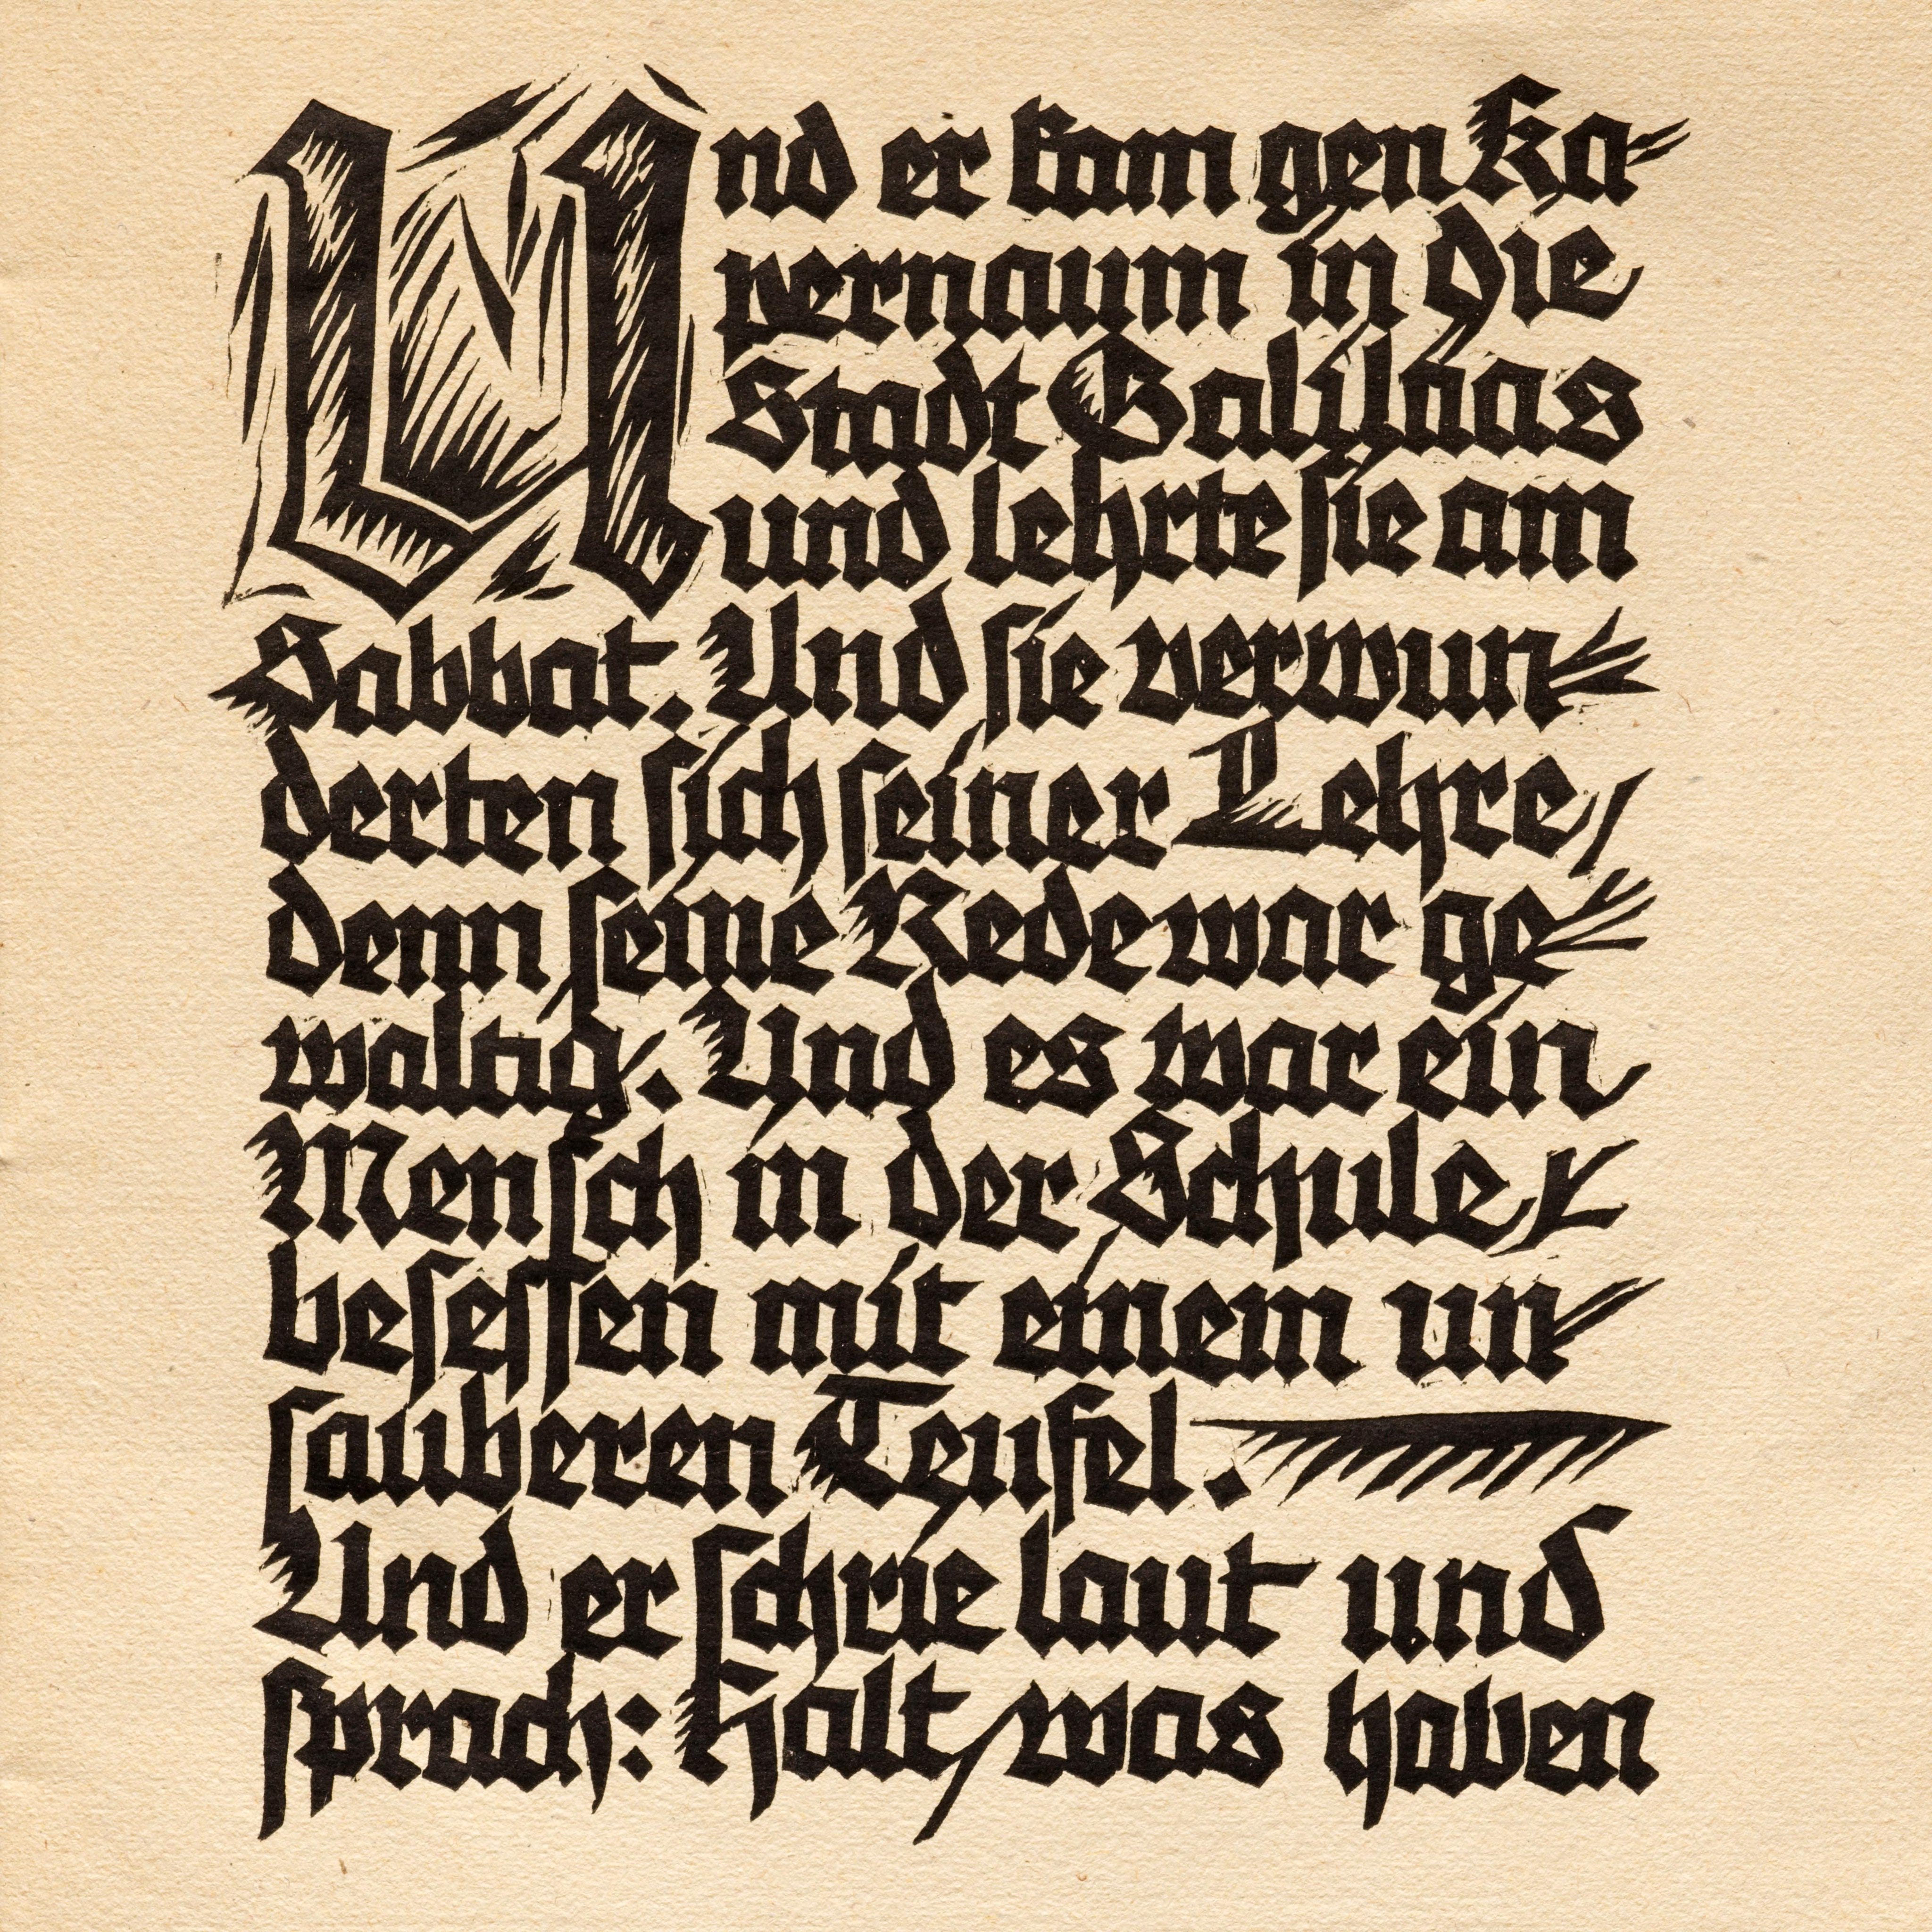 Und er kam gen Ka-
pernaum in die
Stadt Galiläas
und lehrte sie am
Sabbat. Und sie verwun-
derten sich seiner Lehre/
denn seine Rede war ge-
waltig. Und es war ein
Mensch in der Schule/
besessen mit einem un-
sauberen Teufel.
Und er schrie laut und
sprach: Halt/was haben